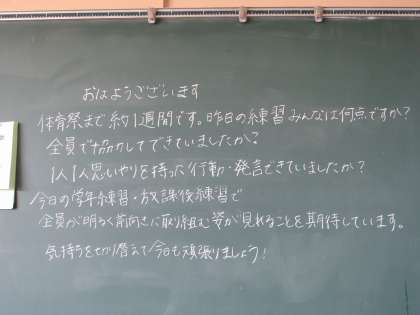 おはようございます
体育祭まで約1週間です。昨日の練習みんなは何点ですか？
全員で協力してできていましたか？
1人1人思いやりを持った行動・発言できていましたか？
今日の学年練習・放課後練習で
全員が明るく前向きに取り組む姿が見れることを期待しています。
気持ちを切り替えて今日も頑張りましょう！